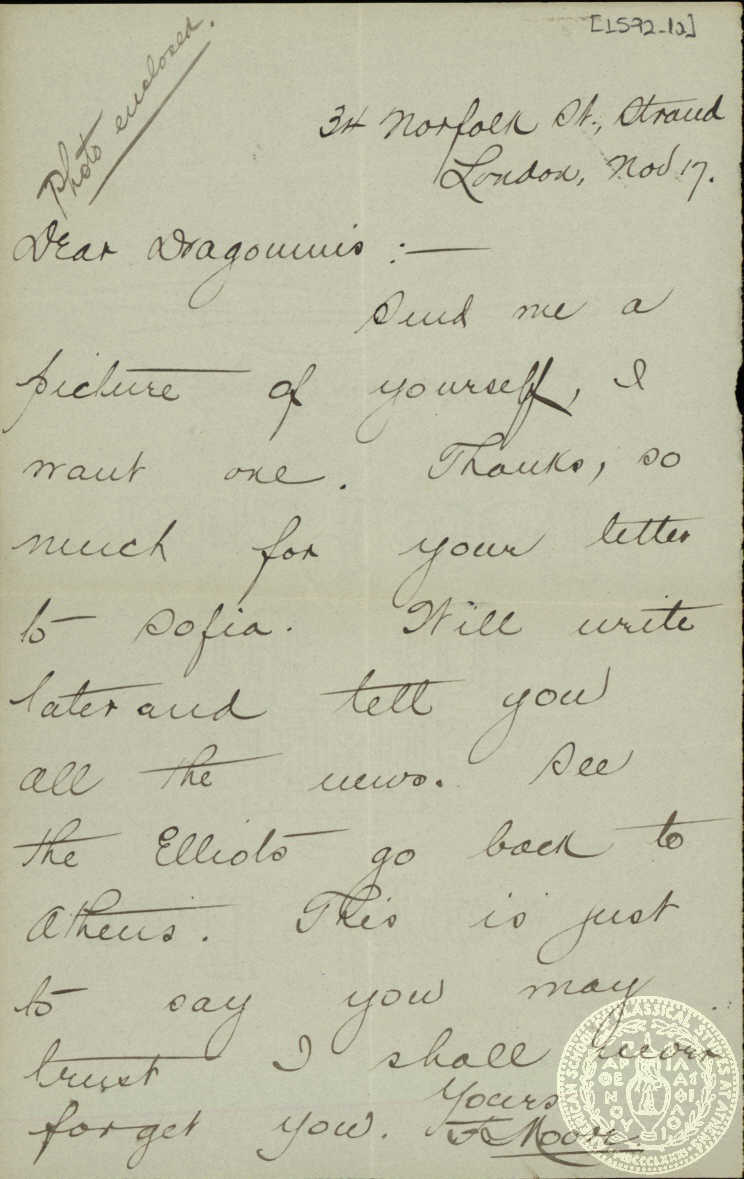 [1592-12]
Photo enclosed.
34 Norfolk St., Strand
London, Nov 17.
Dear Dragoumis :—
Send me a
picture of yourself, I
want one. Thanks, so
much for your letter
to Sofia. Will write
later and tell you
all the news. See
the Elliots go back to
Athens. This is just
to say you may
trust I shall never
forget you. Yours
F Moore